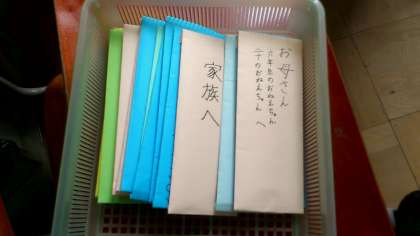 お母さん
六年生のおねえちゃん
二才のおねえちゃん へ
家族へ